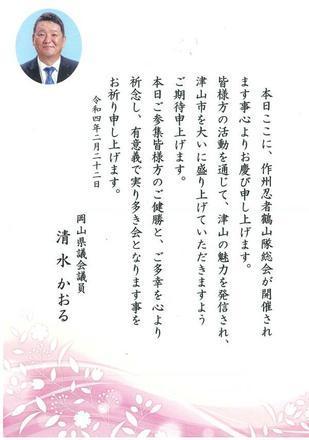 本日ここに、作州忍者鶴山隊総会が開催され
ます事心よりお慶び申し上げます。
皆様方の活動を通じて、津山の魅力を発信され、
津山市を大いに盛り上げていただきますよう
ご期待申上げます。
本日ご参集皆様方のご健勝と、ご多幸を心より
祈念し、有意義で実り多き会となります事を
お祈り申し上げます。
令和四年二月二十二日
岡山県議会議員
清水かおる